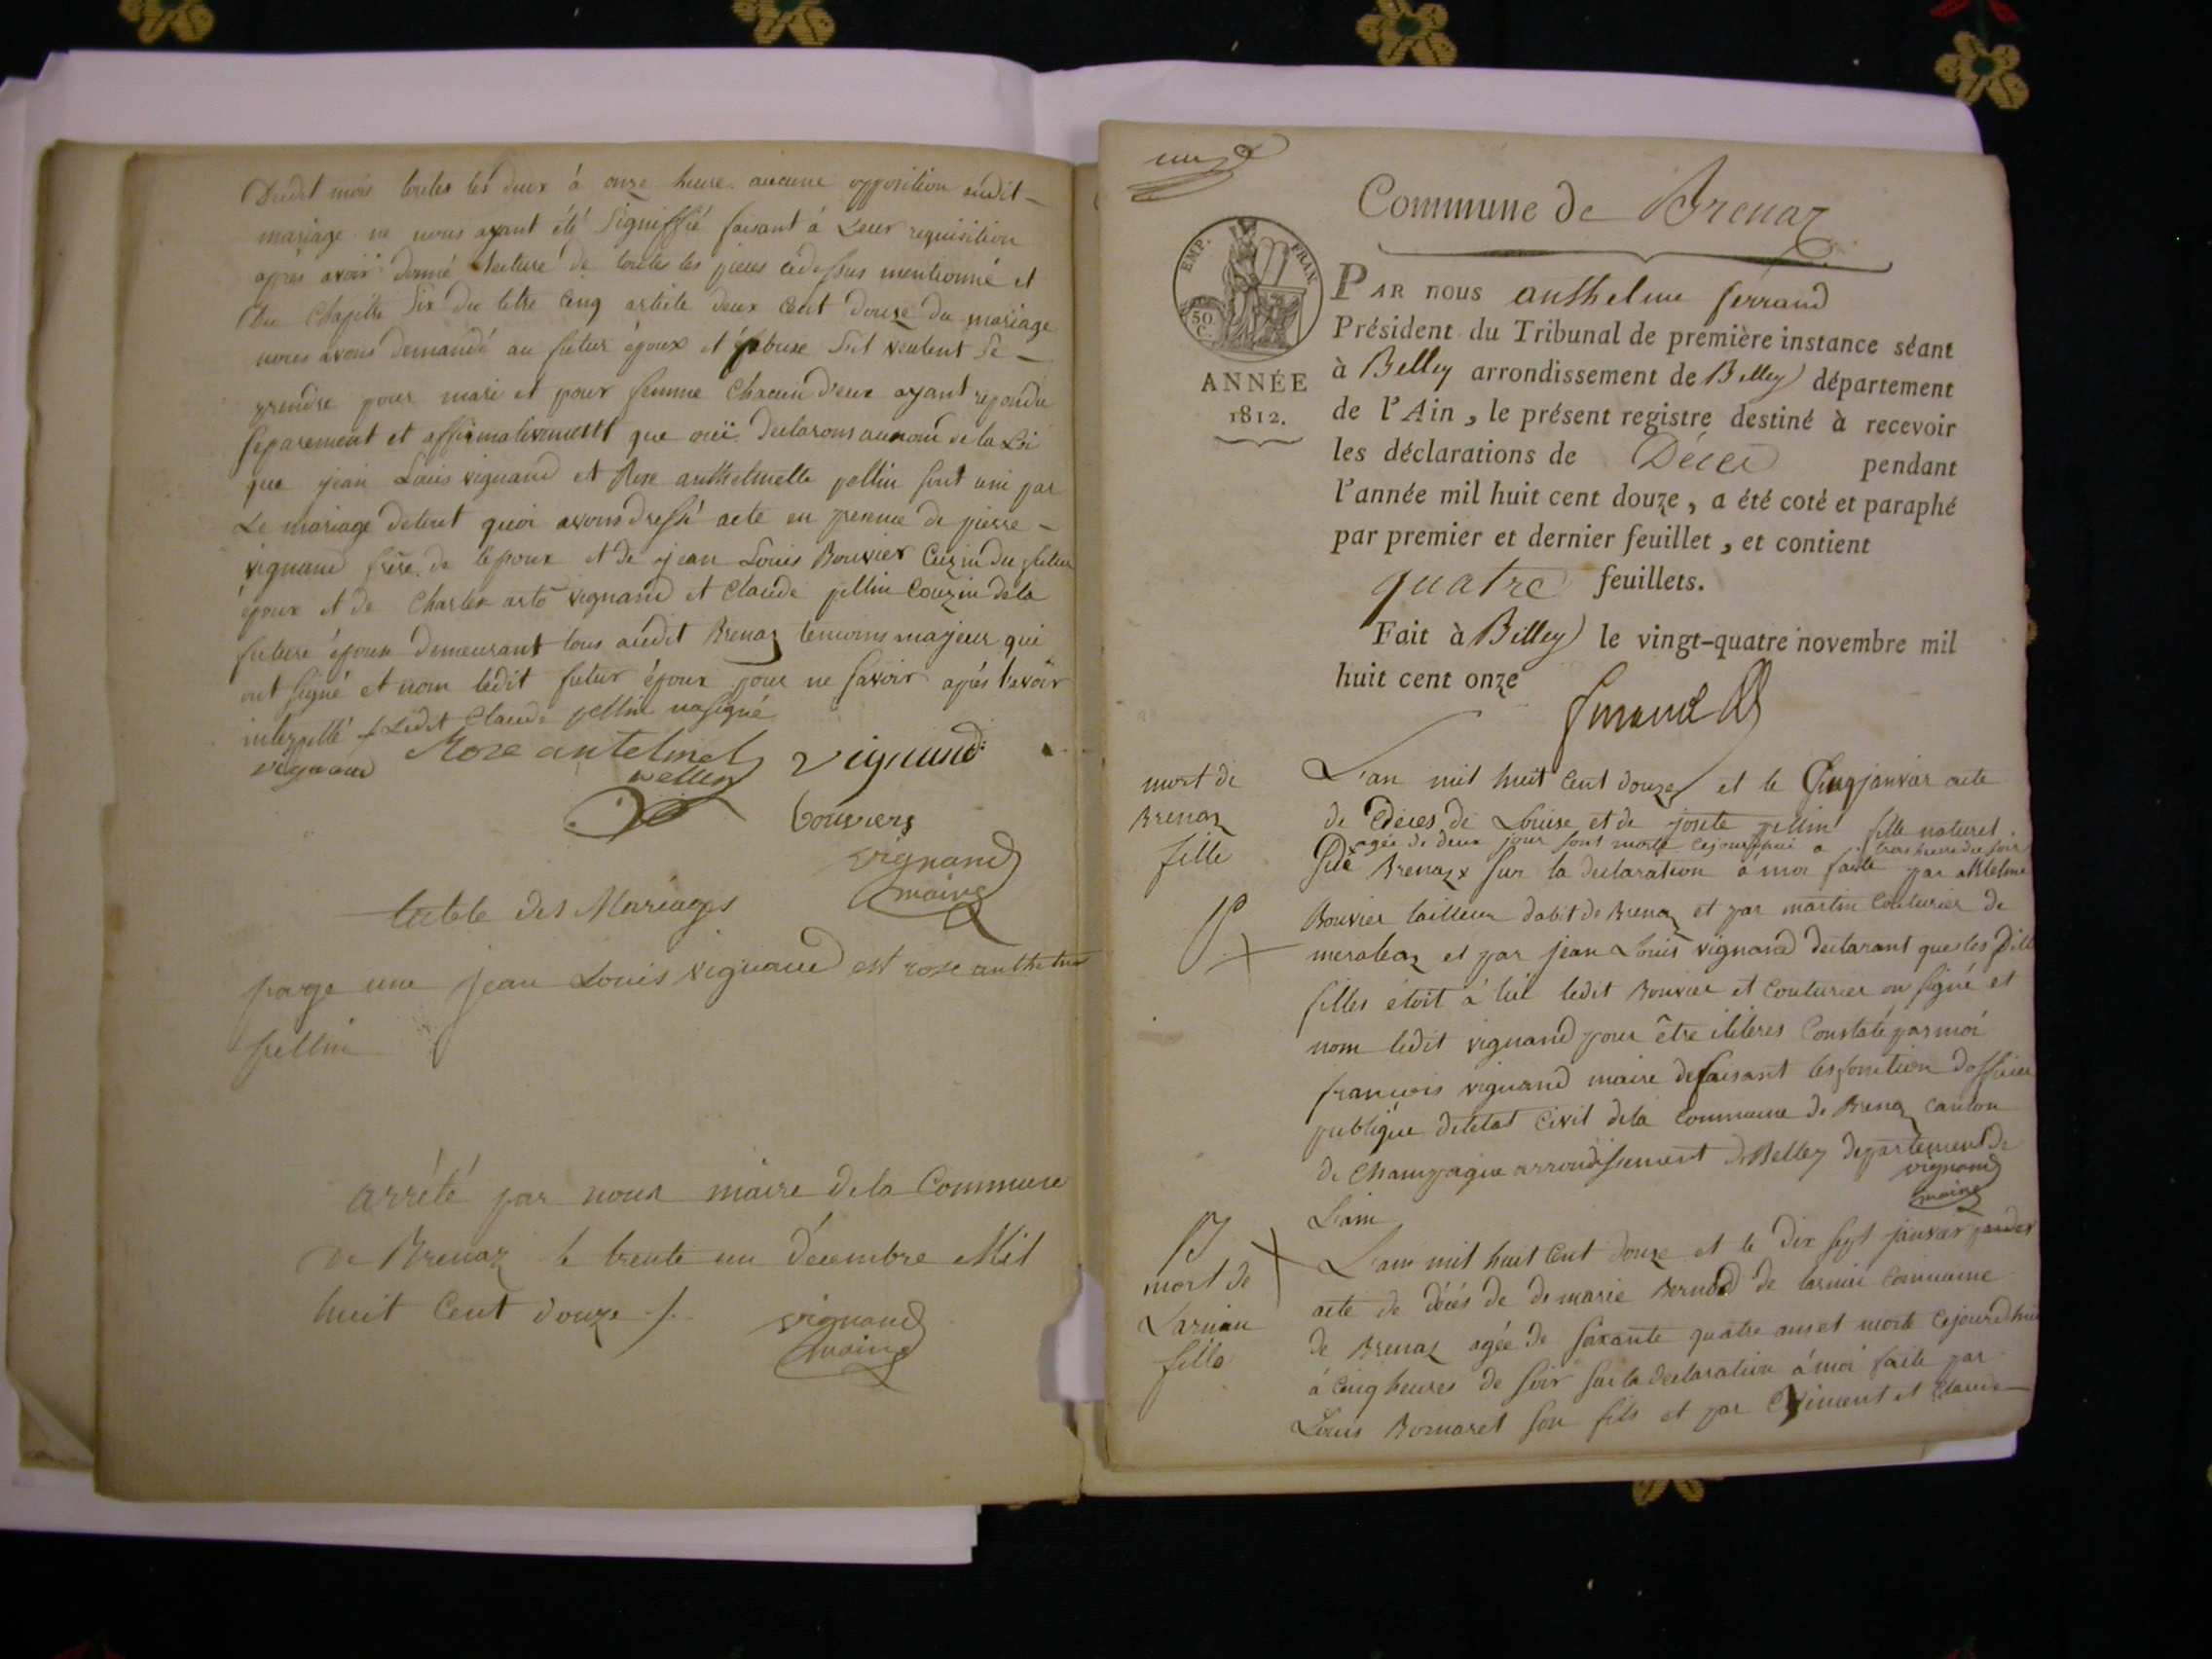 Dudit mois toutes les deux à onze heure aucune opposition audit
mariage ne nous ayant été signiffié faisant à Leur requisition
après avoir donné lecture de toutes les pieces cidessus mentionné et
Du Chapitre Six du titre Cinq article deux Cent douze du mariage
nous avons demandé au futur époux et épouse Sil veulent Se
prendre pour mari et pour femme Chacun d'eux ayant repondu
separement et affirmativement que oui declarons au nom de la Loi
que jean Louis vignand et Rose anthelmette pellin sont uni par
Le mariage detout quoi avons dressé acte en presence de pierre
vignand frère de lepoux et de jean Louis Bouvier Cuzin du futur
époux et de Charles vignand et Claude pellin Couzin dela
future épouse demeurant tous audit Brenaz temoins majeur qui
ont signé et nom ledit futur époux pour ne savoir après lavoir
interpellé Ledit Claude pellin na signé
vignand Rose antelmet vignand
pellin
bouviers
vignand
maire
table des Mariages
page une jean Louis vignand et rose anthelme
pellin
arrété par nous maire dela Commune
De Brenaz le trente un décembre Mil
huit Cent douze /. vignand
maire
Commune de Brenaz
EMP. FRAN.
50
C.
ANNÉE
1812.
PAR nous anthelme ferrand
Président du Tribunal de première instance séant
à Belley arrondissement de Belley département
de l'Ain, le présent registre destiné à recevoir
les déclarations de Décés pendant
l'année mil huit cent douze, a été coté et paraphé
par premier et dernier feuillet, et contient
quatre feuillets.
Fait à Belley le vingt-quatre novembre mil
huit cent onze
mort de
Brenaz
fille
L'an mil huit Cent douze et le Cinq janvier acte
de Décès de Louise et de josete pellin fille naturel
agée de deux jour sont morte cejourdhui a trois heure du soir
de Brenaz x sur la declaration à moi faite par antelme
Bouvier tailleur dabit de Brenaz et par martin Couturier de
meraleaz et par jean Louis vignand declarant que les dite
filles étoit à lui ledit Bouvier et Couturier on signé et
nom ledit vignand pour être iliteres Constaté par moi
francois vignand maire de faisant les fonction dofficier
publique detetat Civil dela Commune de Brenaz Canton
de Champagne arrondissement de Belley departement de
Lain
vignand
maire
mort de
Larnin
fille
L'an mil huit Cent douze et le dix sept janvier pardev
acte de décés de de marie Bernod de larnin Commune
de Brenaz agée de soixante quatre ans et morte cejourdhui
à Cinq heures de soir sur la declaration à moi faite par
Louis Bornaret son fils et par Climent et Claude